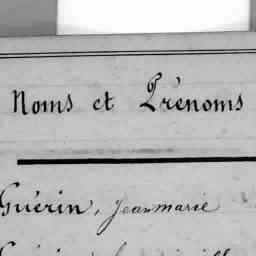 Noms et Prénoms
Guérin, Jeanmarie